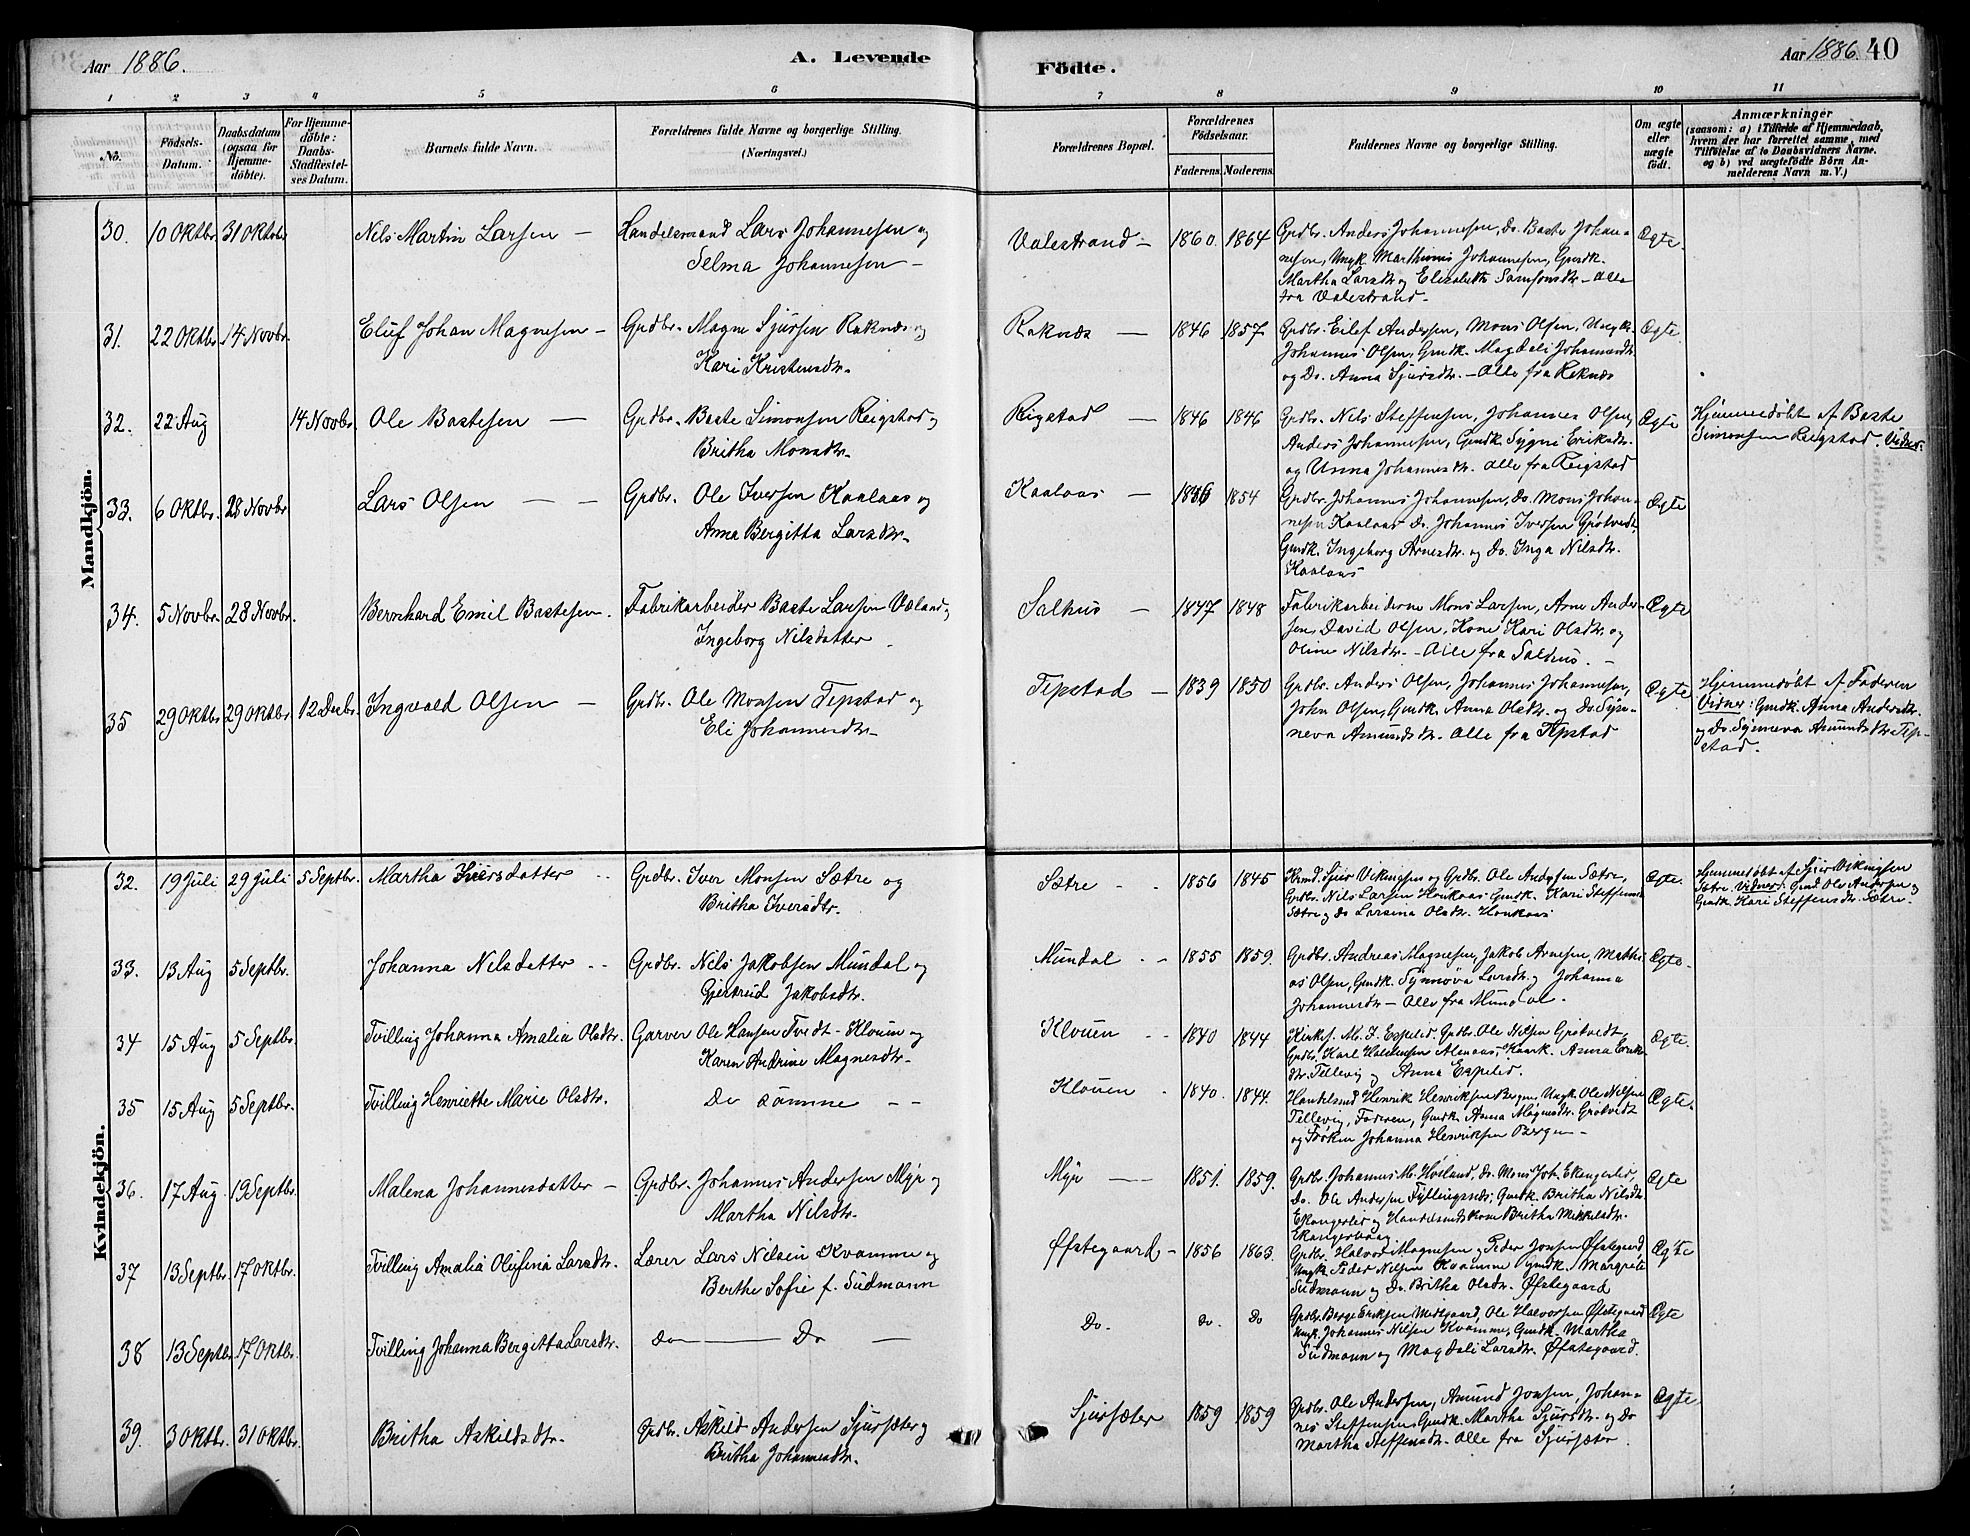 Aar 1886. A. Levende Födte. Aar 1886. 40
1 2 3 4 5 6 7 8 9 10 11
No. Födsels-Datum. Daabsdatum (ogsaa for Hjemme-döbte). For Hjemme-döbte: Daabs-Stadfæstel-ses Datum. Barnets fulde Navn. Forældrenes fulde Navne og borgerlige Stilling. (Næringsvei.) Forældrenes Bopæl. Forældrenes Födselsaar. Faderens. Moderens. Faddernes Navne og borgerlige Stilling. Om ægte eller uægte födt. Anmærkninger (saasom: a) i Tilfælde af Hjemmedaab, hvem der har forrettet samme, med Tilföielse af to Daabsvidners Navne. og b) ved uægtefödte Börn An-melderens Navn m. V.)
Mandkjön.
30. 10 Oktbr. 31 Oktobr Nils Martin Larsen — Handelsmand Lars Johannesen og
Selma Johannesen —
Valestrand — 1860. 1864 Grdbr. Anders Johannesen, Do. Baste Johan-
nesen, Ungk. Marthinus Johannesen, Gmdk.
Martha Larsdtr. og Elisabeth Samsonsdtr. — Alle
fra Valestrand. Ægte.
31. 22 Oktbr. 14 Novbr. Eluf Johan Magnesen — Grdbr. Magne Sjursen Raknæs og
Kari Kristensdtr.
Raknæs — 1846 1857 Grdbr. Eilef Andersen, Mons Olsen, Ungk.
Johannes Olsen, Gmdk. Magdeli Johannesdtr.
og Do. Anna Sjursdtr. — Alle fra Raknæs Ægte.
32. 22 Aug 14 Novbr. Ole Bastesen — Grdbr. Baste Simonsen Reigstad og
Britha Monsdtr.
Rigstad — 1846 1846 Grdbr. Nils Steffensen, Johannes Olsen,
Anders Johannesen, Gmdk. Sygni Eriksdtr.
og Unna Johannesdtr. Alle fra Reigstad Ægte Hjemmedøbt af Baste
Simonsen Reigstad. Vidner:
33. 6 Oktbr. 28 Novbr Lars Olsen — — Grdbr. Ole Iversen Kaalaas og
Anna Bergitta Larsdtr.
Kaalaas — 1854 Grdbr. Johannes Johannesen, Do. Mons Johan-
nesen Kaalaas Do. Johannes Iversen Grøtvedt,
Gmdk. Ingeborg Arnesdtr. og Do. Inga Nilsdtr.
Kaalaas Ægte
34. 5 Novbr. 28 Novbr. Bernhard Emil Bastesen. Fabrikarbeider Baste Larsen Væland og
Ingeborg Nilsdatter
Salhus — 1847 1848 Fabrikarbeiderne Mons Larsen, Arne Ander-
sen, David Olsen, Kone Kari Olsdtr. og
Oline Nilsdtr. — Alle fra Salhus. — Ægte
35 29 Oktbr 29 Oktbr. 12 Decbr. Ingvald Olsen — Grdbr. Ole Monsen Tepstad og
Eli Johannesdtr.
Tepstad — 1839 1850 Grdbr. Anders Olsen, Johannes Johannesen,
John Olsen, Gmdk. Anna Olsdtr. og Do. Syn-
neva Amundsdtr. Alle fra Tepstad Ægte Hjemmedøbt af Faderen
Vidner: Gmdk. Anna Andersdtr.
og Do. Synneva Amundsdtr. Tep-
stad.
Kvindekjön.
32. 19 Juli 29 Juli 5 Septbr. Martha Iversdatter Grdbr. Iver Monsen Sætre og
Britha Iversdtr.
Sætre 1856 1845 Sjur Vikingsen og Grdbr. Ole Andersen Sætre,
Grdbr. Nils Larsen Honkaas Gmdk. Kari Steffensd.
Sætre og Do Larsina Olsdtr. Honkaas Ægte. Hjemmedøbt af Sjur Vikingsen
Sætre. Vidner: Gmd. Ole Andersen og
Gmdk. Kari Steffensdtr. Sætre.
33. 13 Aug 5 Septbr. Johanna Nilsdatter Grdbr. Nils Jakobsen Mundal og
Gjertrud Jakobsdtr.
Mundal 1855 1859. Grdbr. Andreas Magnesen, Jakob Arnesen, Mathi-
as Olsen, Gmdk. Synnøva Larsdtr. og Johanna
Johannesdtr. — Alle fra Mundal. Ægte.
34 15 Aug 5 Septbr. Tvilling Johanna Amalia Olsdtr. Garver Ole Hansen Tvedt - Klouen og
Karen Andrine Magnesdtr.
Klouen 1840 1844 Kirkes. M. J. Espelid. Grdbr. Ole Nilsen Grøtvedt,
Grdbr. Karl Alenaas, Anna Erik-
dtr. Tellevig og Anna Espelid. Ægte.
35 15 Aug 5 Septbr. Tvilling Henriette Marie Olsdtr. De samme — —
Klouen 1840. 1844. Handelsmd Henrik Henriksen Bergen, Ungk. Ole Nilsen
Tellevig, Faderen, Gmdk. Anna Magnesdtr. Grøtvedt
og Frøken Johanna Henriksen Bergen — Ægte.
36. 17 Aug 19 Septbr. Malena Johannesdatter — Grdbr. Johannes Andersen Myr og
Martha Nilsdtr.
Myr — 1851. 1859. Grdbr. Johannes M. Høiland, Do. Mons Joh. Ekangerlid,
Do. Ole Andersen Fyllingsnæs, Gmdk. Britha Nilsdtr.
Ekangerlid og Handelsmdskone Britha Mikkelsdtr.
Ekangervaag Ægte
37 13 Septbr. 17 Oktbr. Tvilling Amalia Olufina Larsdtr. Lærer Lars Nilsen Kvamme og
Berthe Sofie f. Südmann
Øfstegaard — 1856 1863. Grdbr. Halvor Magnesen og Peder Jonsen Øfstegaard,
Ungk. Peder Nilsen Kvamme Gmdk. Margrete
Südmann og Do. Britha Olsdtr. Øfstegaard Ægte
38 13 Septbr. 17 Oktbr. Tvilling Johanna Bergitta Larsdtr. Do — Do —
Do. Do. Do Grdbr. Berge Eriksen Midtgaard, Ole Halvorsen Øfstegaard
Ungk. Johannes Nilsen Kvamme, Gmdk. Martha
Südmann og Magdeli Larsdtr. Øfstegaard. Ægte
39. 3 Oktbr. 31 Oktbr. Britha Askildsdtr. Grdbr. Askild Andersen Sjursæter og
Britha Johannesdtr.
Sjursæter 1859 1859 Grdbr. Ole Andersen, Amund Jonsen, Johan-
nes Steffensen, Gmdk. Martha Sjursdtr. og Do
Martha Steffensdtr. Alle fra Sjursæter. Ægte